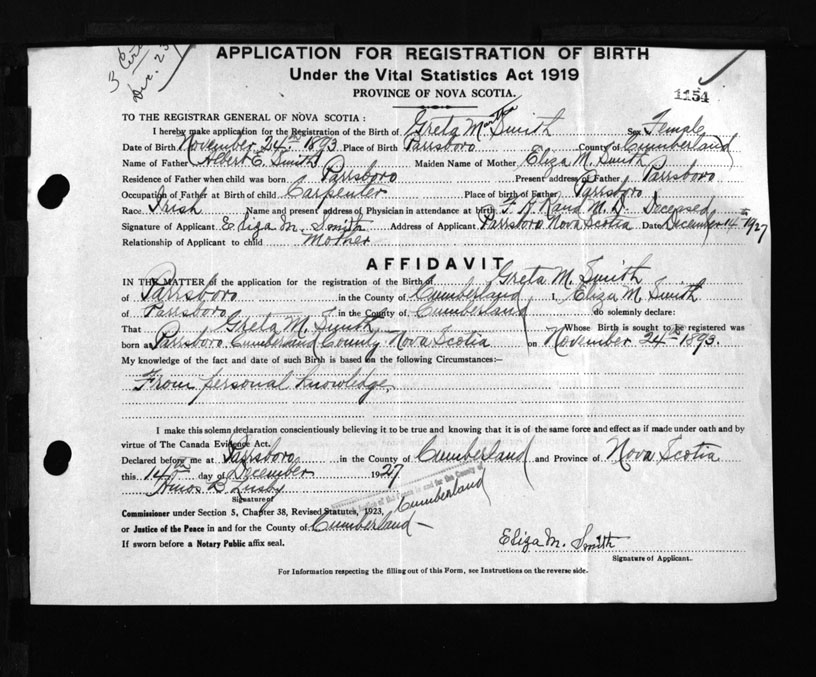 3 Cert
Dec. 23
APPLICATION FOR REGISTRATION OF BIRTH
Under the Vital Statistics Act 1919
PROVINCE OF NOVA SCOTIA.
1154
TO THE REGISTRAR GENERAL OF NOVA SCOTIA :
I hereby make application for the Registration of the Birth of Greta Martha Smith Sex Female
Date of Birth November 24th 1893 Place of Birth Parrsboro County of Cumberland
Name of Father Albert E. Smith Maiden Name of Mother Eliza M. Smith
Residence of Father when child was born Parrsboro Present address of Father Parrsboro
Occupation of Father at Birth of child Carpenter Place of birth of Father Parrsboro
Race Irish Name and present address of Physician in attendance at birth F. A. Rand M. D. Deceased
Signature of Applicant Eliza M. Smith Address of Applicant Parrsboro Nova Scotia Date December 14th 1927
Relationship of Applicant to child Mother
AFFIDAVIT
IN THE MATTER of the application for the registration of the Birth of Greta M. Smith
of Parrsboro in the County of Cumberland I, Eliza M. Smith
of Parrsboro in the County of Cumberland do solemnly declare:
That Greta M. Smith Whose Birth is sought to be registered was
born at Parrsboro Cumberland County Nova Scotia on November 24th 1893.
My knowledge of the fact and date of such Birth is based on the following Circumstances:—
From personal knowledge.
I make this solemn declaration conscientiously believing it to be true and knowing that it is of the same force and effect as if made under oath and by
virtue of The Canada Evidence Act.
Declared before me at Parrsboro in the County of Cumberland and Province of Nova Scotia
this 14th day of December 1927
Amos B. Lusby
Signature of
Justice of the Peace in and for the County of
Cumberland
Commissioner under Section 5, Chapter 38, Revised Statutes, 1923,
or Justice of the Peace in and for the County of Cumberland
If sworn before a Notary Public affix seal.
Eliza M. Smith
Signature of Applicant.
For Information respecting the filling out of this Form, see Instructions on the reverse side.